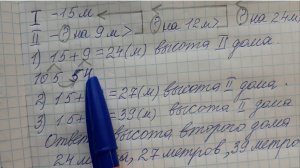 I - 15 м
II - ? на 9 м > ? на 12 м > ? на 24 м
1) 15 + 9 = 24 (м) высота II дома.
10 5 5 4
2) 15 + = 27 (м) высота II дома.
3) 15 + = 39 (м) высота II дома
Ответ: высота второго дома
24 м, 27 метров, 39 метро